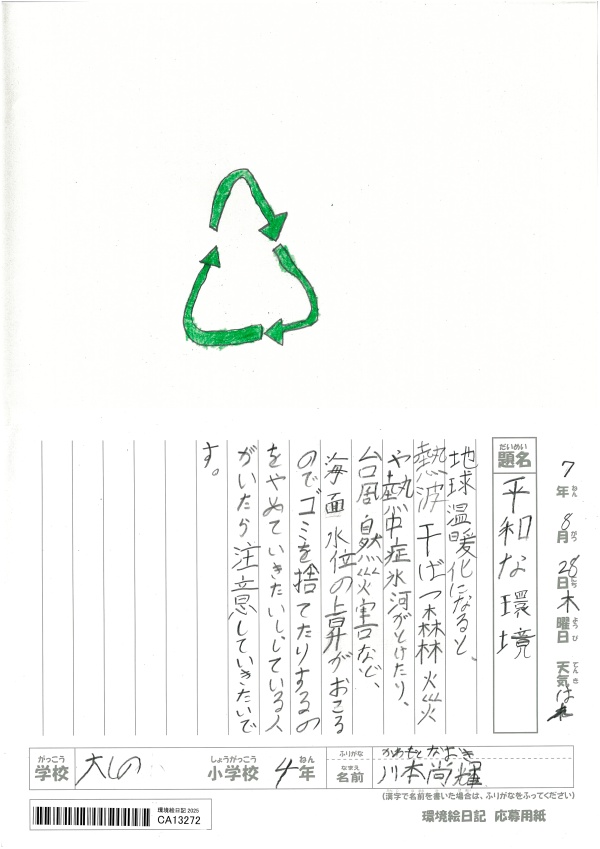 7年 8月 28日 木曜日 天気 はれ
ねん がつ にち ようび てんき
だいめい
題名
平和な環境
地球温暖化になると、
熱波干ばつ森林火災
や熱中症氷河がとけたり、
台風自然災害など、
海面水位の上昇がおこる
のでゴミを捨てたりするの
をやめていきたいし、している人
がいたら注意していきたいで
す。
がっこう
学校 大しの
しょうがっこう ねん
小学校 4年
ふりがな かわもと なおき
なまえ
名前 川本尚輝
(漢字で名前を書いた場合は、ふりがなをふってください)
環境絵日記 2025
CA13272
環境絵日記 応募用紙